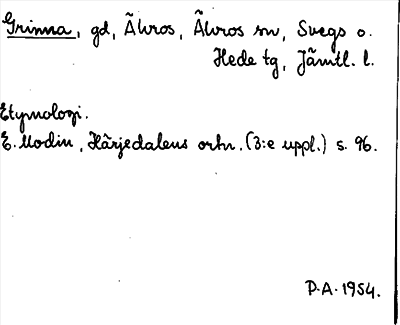 Grinna, gd, Älvros, Älvros sn, Svegs o.
Hede tg, Jämtl. l.
Etymologi.
E. Modin, Härjedalens ortn. (3:e uppl.) s. 96.
P.A. 1954.